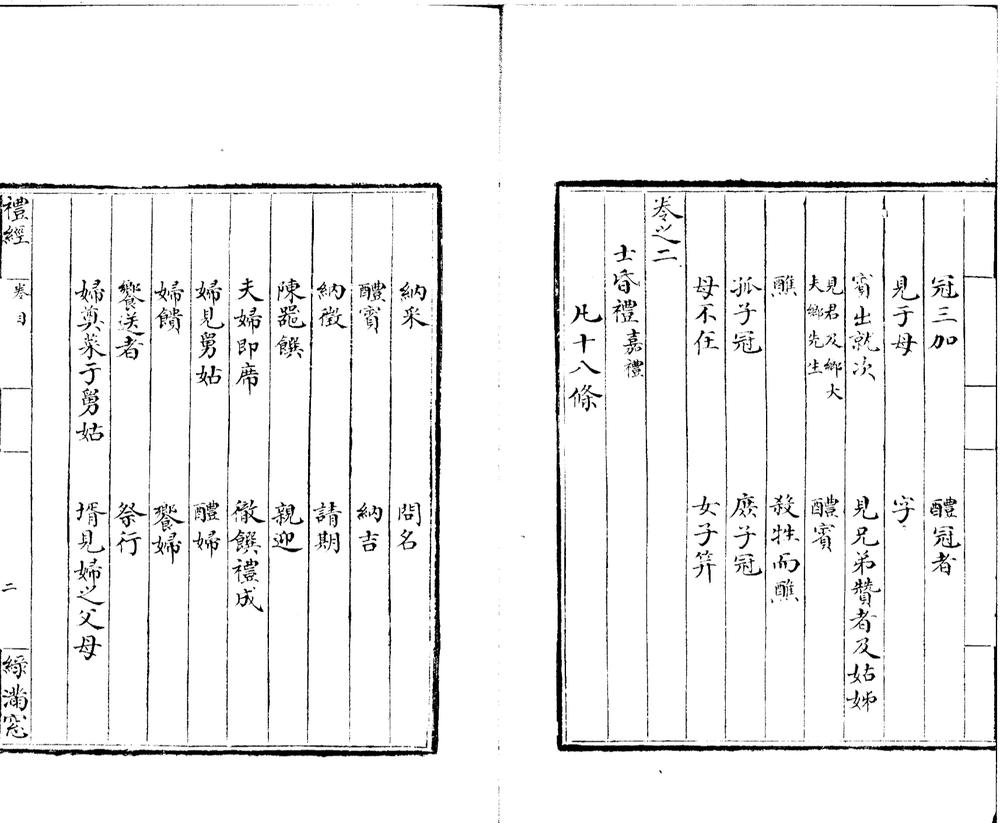 冠三加　醴冠者
見于母　字
賓出就次　見兄弟贊者及姑姊
見君及鄉大夫鄉先生　醴賓
醮　殺牲而醮
孤子冠　庶子冠
母不在　女子筓
卷之二
士昏禮嘉禮
凡十八條
納采　問名
醴賓　納吉
納徵　請期
陳噐饌　親迎
夫婦即席　徹饌禮成
婦見舅姑　醴婦
婦饋　饗婦
饗送者　祭行
婦奠菜于舅姑　壻見婦之父母
禮經　卷目　二　綠滿窓